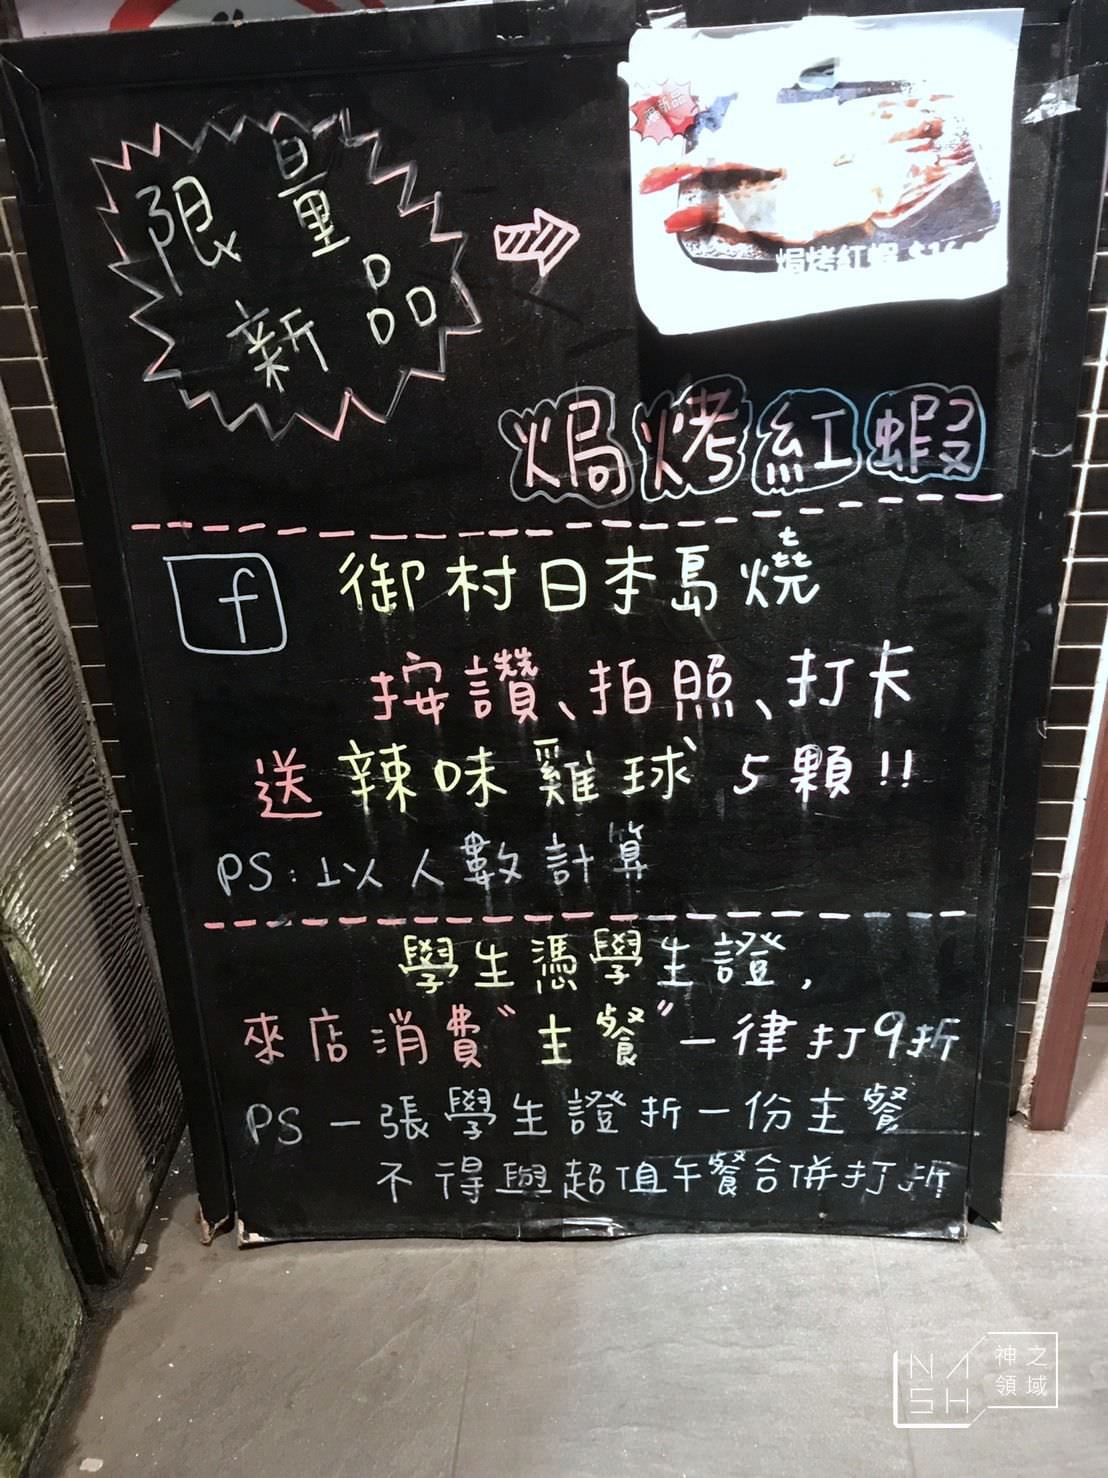 限量
新品
焗烤紅蝦
焗烤紅蝦
f 御村日本島燒
按讚、拍照、打卡
送辣味雞球5顆!!
PS:以人數計算
學生憑學生證,
來店消費"主餐"一律打9折
PS 一張學生證折一份主餐
不得與超值午餐合併打折
NASH 神之領域